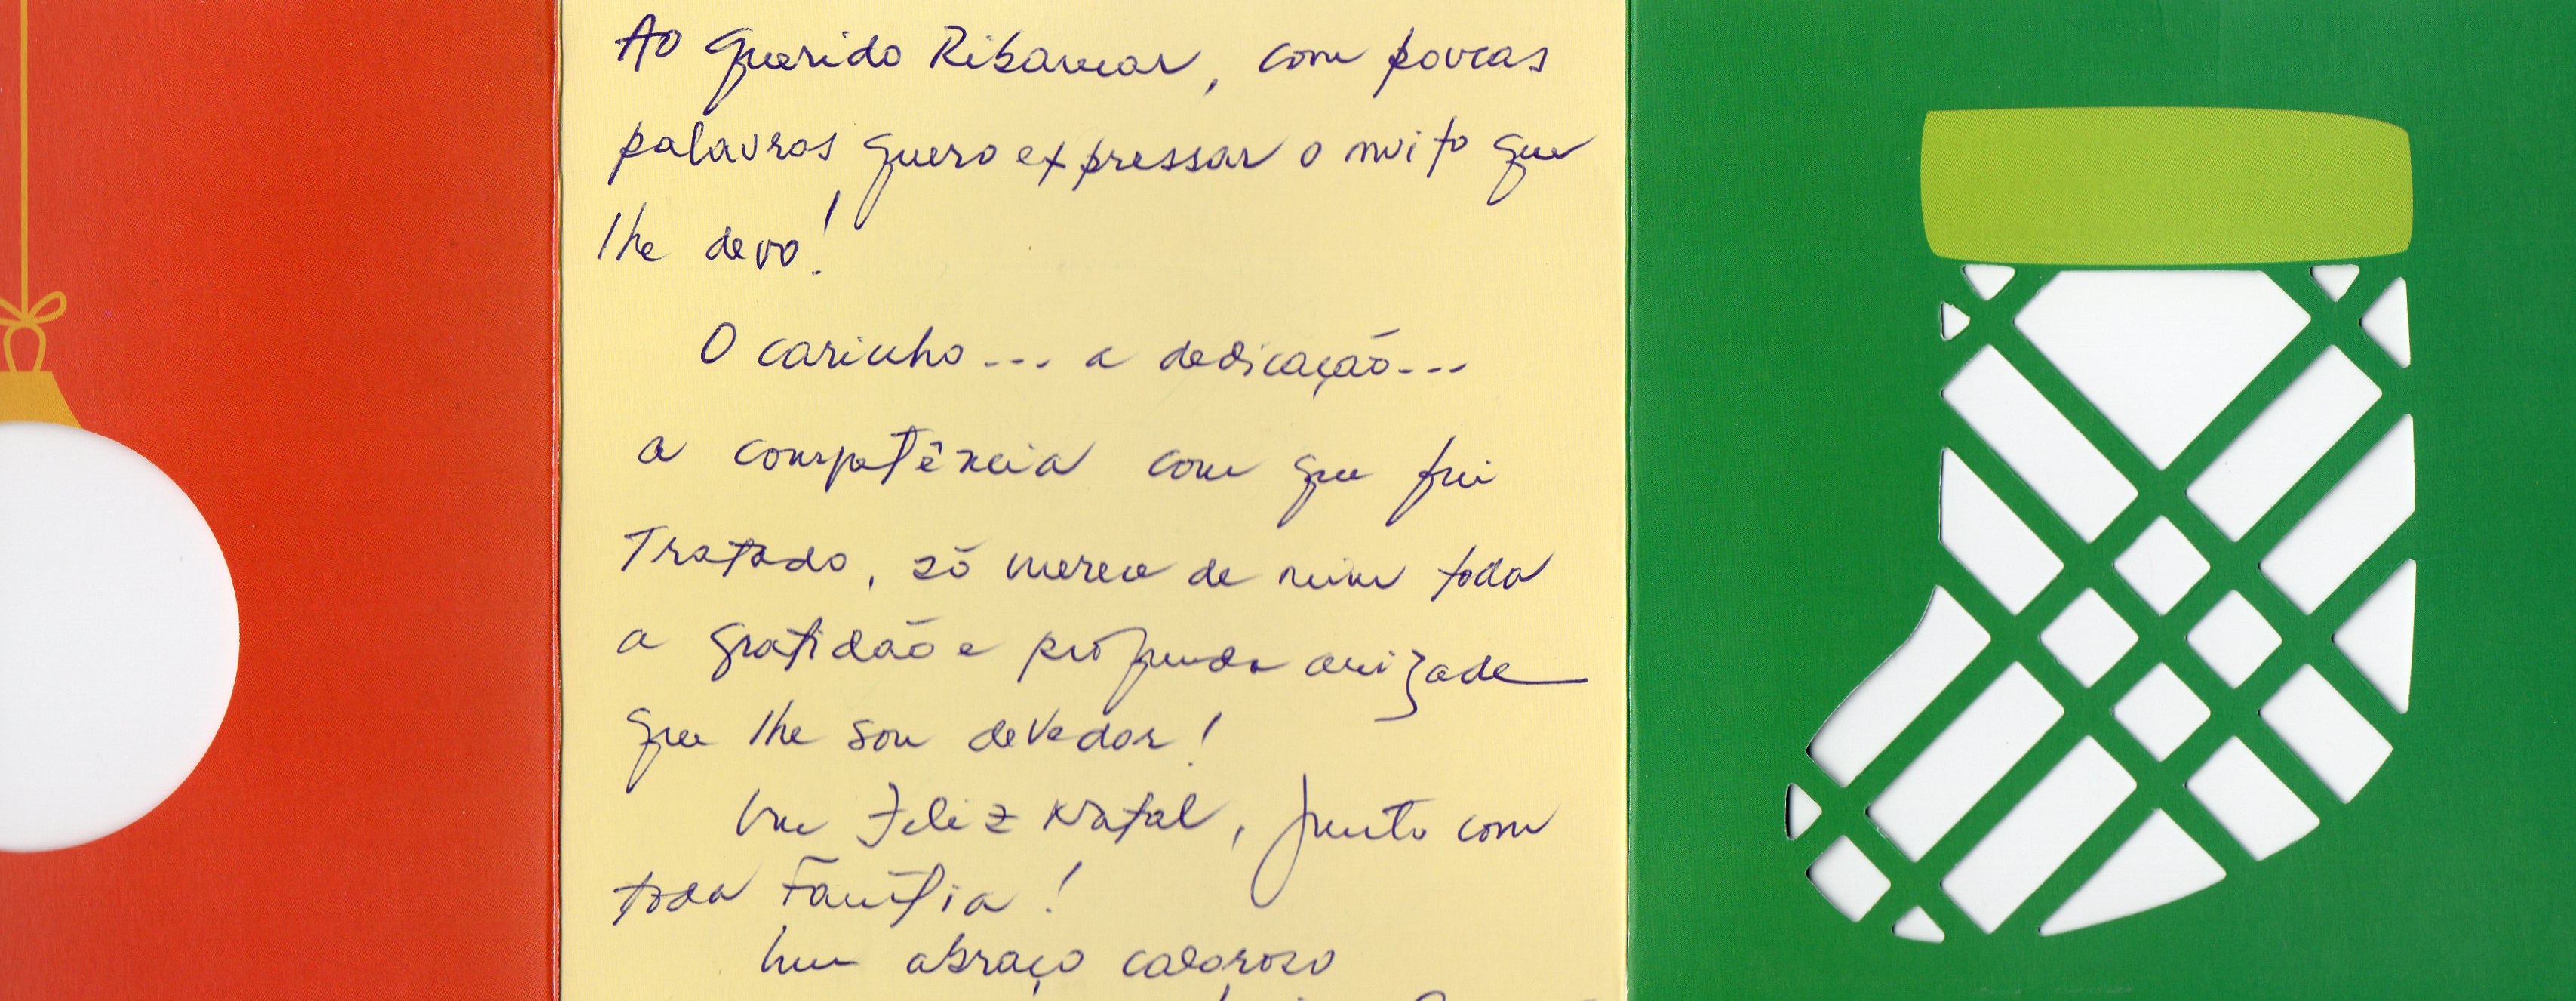 Ao Querido Ribamar, com poucas
palavras quero expressar o muito que
lhe devo!
O carinho... a dedicação...
a competência com que fui
Tratado, só merece de mim toda
a gratidão e profunda amizade
que lhe sou devedor!
Um Feliz Natal, junto com
toda Família!
Um abraço caloroso